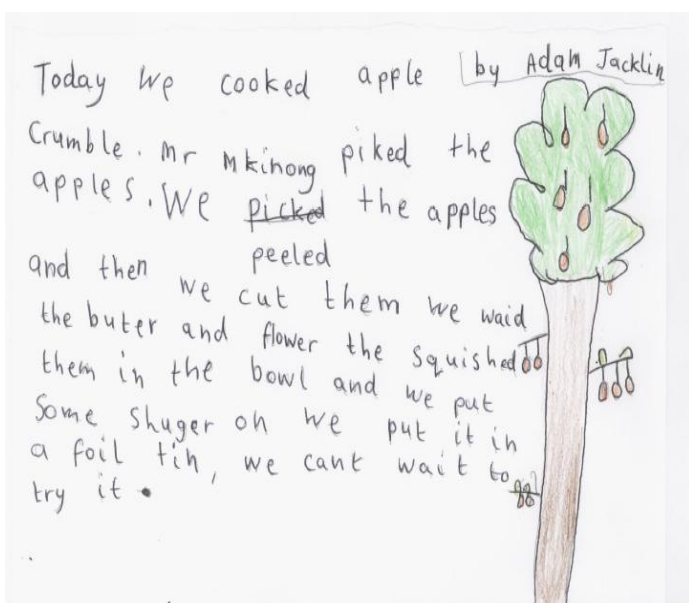 Today we cooked apple by Adam Jacklin
Crumble. Mr Mkinong piked the
apples. We picked the apples
peeled
and then we cut them we waid
the buter and flower the squished
them in the bowl and we put
Some shuger on we put it in
a foil tin, we cant wait to
try it.